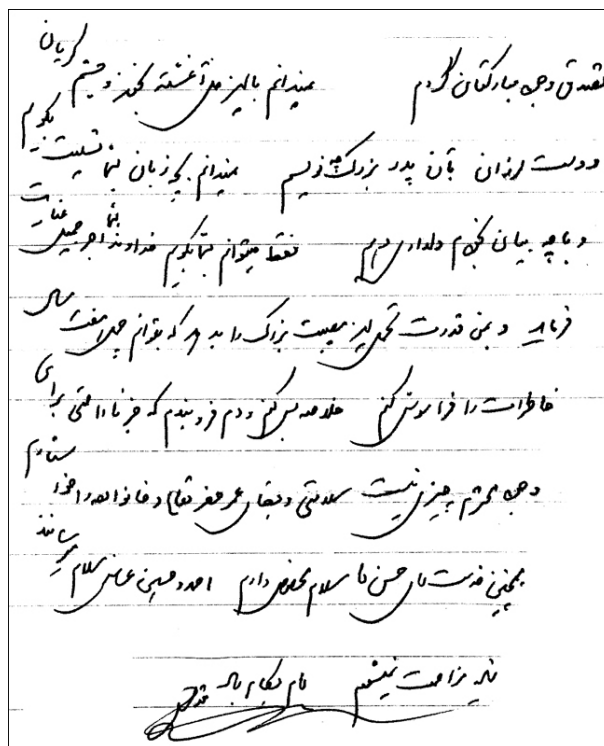 تصدق وجود مبارکتان گردم نمیدانم با این دل آغشته بخون و چشم گریان
و دست لرزان بآن پدر بزرگ چه نویسم نمیدانم بچه زبان بشما تسلیت بگویم
و با چه بیان دلداری دهم فقط میتوانم بشما بگویم خداوند بشما اجر جمیل عنایت
فرماید و بمن قدرت تحمل این مصیبت بزرگ را بدهد که بتوانم چهل و هفت سال
خاطرات را فراموش کنم خلاصه بس کنم و دم فرو بندم که جز ناراحتی برای
وجود محترم چیزی نیست سلامتی و بقای عمر حضرتعالی و خانواده را خواستارم
همچنین خدمت حسن سلام مخلص دارم احمد و حسین سلام میرسانند
مزاحمت نمیشوم ایام بکام باد